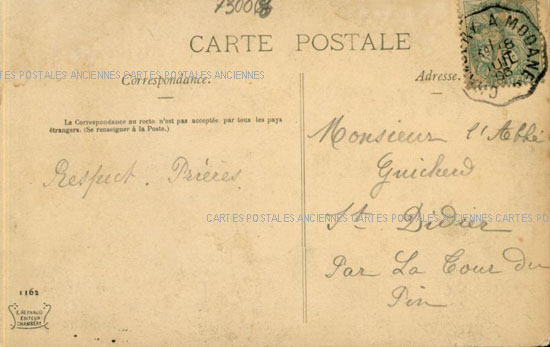 73000
CARTE POSTALE
A MODANE
CARTES POSTALES ANCIENNES CARTES POSTALES ANCIENNES CARTES POSTALES ANCIENNES CARTES POSTALES
Correspondance.
Adresse.
La Correspondance au recto n'est pas acceptée par tous les pays
étrangers. (Se renseigner à la Poste.)
Monsieur l'Abbé
Respect. Prières
CARTES POSTALES ANCIENNES CARTES POSTALES ANCIENNES CARTES POSTALES
St Didier
Par La Tour du
Pin
1162
E. REYNAUD
ÉDITEUR
CHAMBÉRY